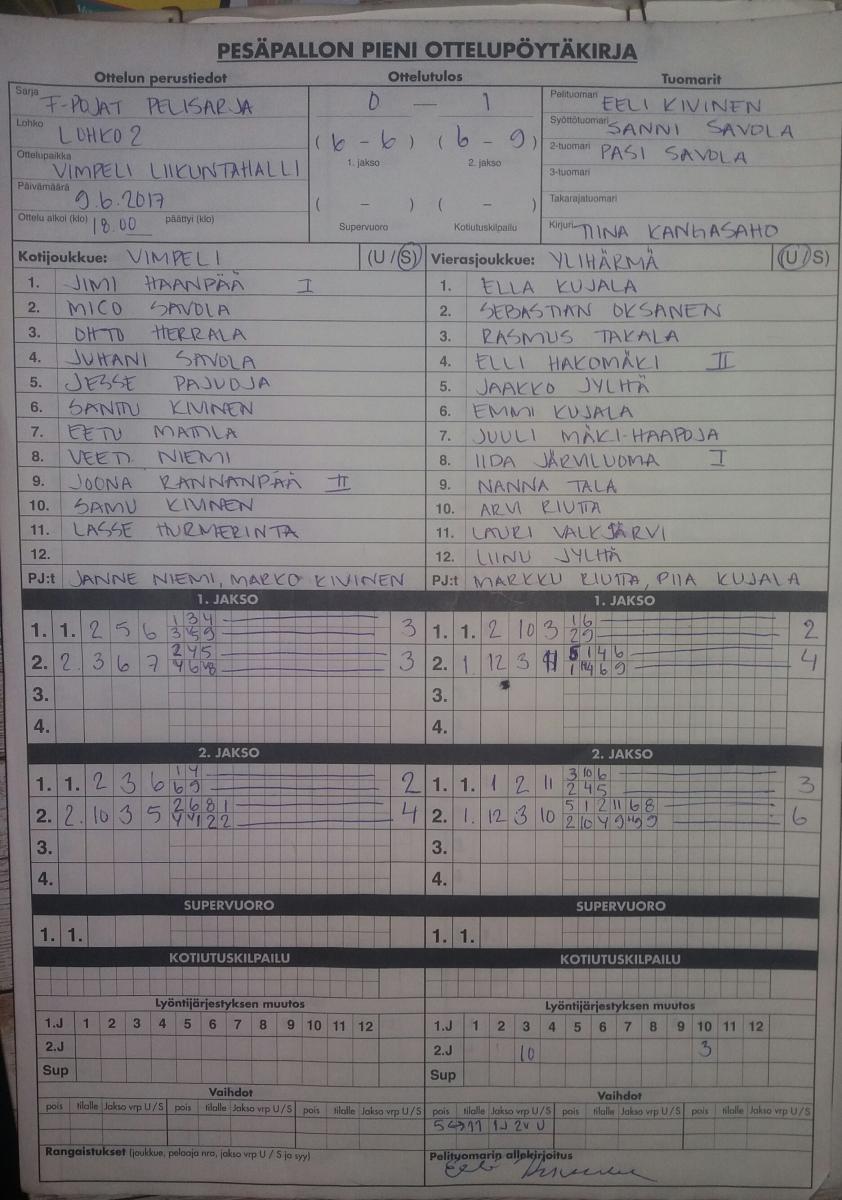 PESÄPALLON PIENI OTTELUPÖYTÄKIRJA
Ottelun perustiedot
Sarja
F-POJAT PELISARJA
Lohko
LOHKO 2
Ottelupaikka
VIMPELI LIIKUNTAHALLI
Päivämäärä
9.6.2017
Ottelu alkoi (klo) 18.00 päättyi (klo)
Ottelutulos
0 — 1
(6 - 6) (6 - 9)
1. jakso 2. jakso
( - ) ( - )
Supervuoro Kotiutuskilpailu
Tuomarit
Pelituomari EELI KIVINEN
Syöttötuomari SANNI SAVOLA
2-tuomari PASI SAVOLA
3-tuomari
Takarajatuomari
Kirjuri TIINA KANGASAHO
Kotijoukkue: VIMPELI (U/S)
1. JIMI HAANPÄÄ I
2. MICO SAVOLA
3. OHTO HERRALA
4. JUHANI SAVOLA
5. JESSE PAJUOJA
6. SANTTU KIVINEN
7. EETU MATTILA
8. VEETI NIEMI
9. JOONA RANNANPÄÄ II
10. SAMU KIVINEN
11. LASSE HURMERINTA
12.
PJ:t JANNE NIEMI, MARKO KIVINEN
Vierasjoukkue: YLIHÄRMÄ (U/S)
1. ELLA KUJALA
2. SEBASTIAN OKSANEN
3. RASMUS TAKALA
4. ELLI HAKOMÄKI II
5. JAAKKO JYLHÄ
6. EMMI KUJALA
7. JUULI MÄKI-HAAPOJA
8. IIDA JÄRVILUOMA I
9. NANNA TALA
10. ARVI RIUTTA
11. LAURI VALKJÄRVI
12. LIINU JYLHÄ
PJ:t MARKKU RIUTTA, PIIA KUJALA
1. JAKSO
1. 1. 2 5 6 1 3 4 3
3 5 9
2. 2. 3 6 7 2 4 5 3
4 6
3.
4.
1. JAKSO
1. 1. 2 10 3 1 6 2
2 9
2. 1. 12 3 5 1 4 6 4
1 6 9
3.
4.
2. JAKSO
1. 1. 2 3 6 1 4 2
6 9
2. 2. 10 3 5 2 6 8 1 4
2 2
3.
4.
2. JAKSO
1. 1. 1 2 11 3 10 6 3
2 4 5
2. 1. 12 3 10 5 1 2 11 6 8 6
2 10 4 9 9
3.
4.
SUPERVUORO
1. 1.
SUPERVUORO
1. 1.
KOTIUTUSKILPAILU
KOTIUTUSKILPAILU
Lyöntijärjestyksen muutos
1.J 1 2 3 4 5 6 7 8 9 10 11 12
2.J
Sup
Lyöntijärjestyksen muutos
1.J 1 2 3 4 5 6 7 8 9 10 11 12
2.J 10 3
Sup
Vaihdot
pois tilalle Jakso vrp U/S pois tilalle Jakso vrp U/S pois tilalle Jakso vrp U/S
Vaihdot
pois tilalle Jakso vrp U/S pois tilalle Jakso vrp U/S pois tilalle Jakso vrp U/S
5 ↔ 11 1J 2v U
Rangaistukset (joukkue, pelaaja nro, jakso vrp U / S ja syy)
Pelituomarin allekirjoitus
Eeli